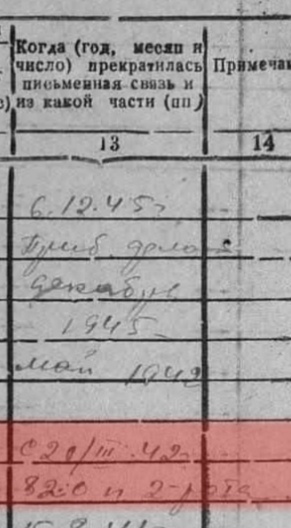 Когда (год, месяц и
число) прекратилась
письменная связь и
из какой части (пп)
Примечан
13
14
6.12.45г
Приб. домой
декабрь
1945
май 1942
с 20/III.42г
82.0 п 2-рота